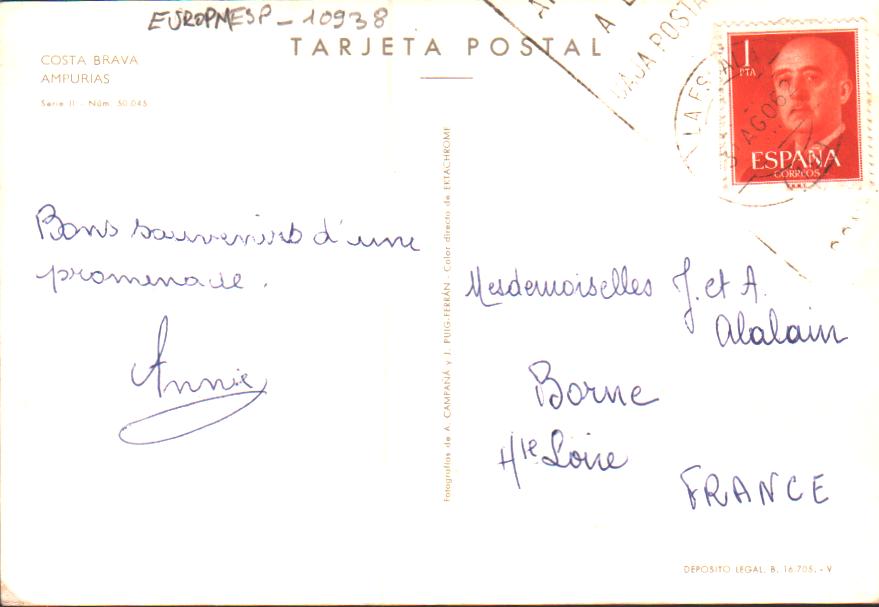 EUROPMESP-10938
TARJETA POSTAL
COSTA BRAVA
AMPURIAS
Serie II - Núm. 50.045
CAJA POSTA
1
PTA
ESPAÑA
CORREOS
LA ESCALA
AGO 62
Bons souvenirs d'une
promenade.
Annie
Fotografías de A. CAMPAÑÁ y J. PUIG-FERRÁN - Color directo de EKTACHROME
Mesdemoiselles J. et A.
Alalain
Borne
Hte Loire
FRANCE
DEPOSITO LEGAL, B. 16.705. - V